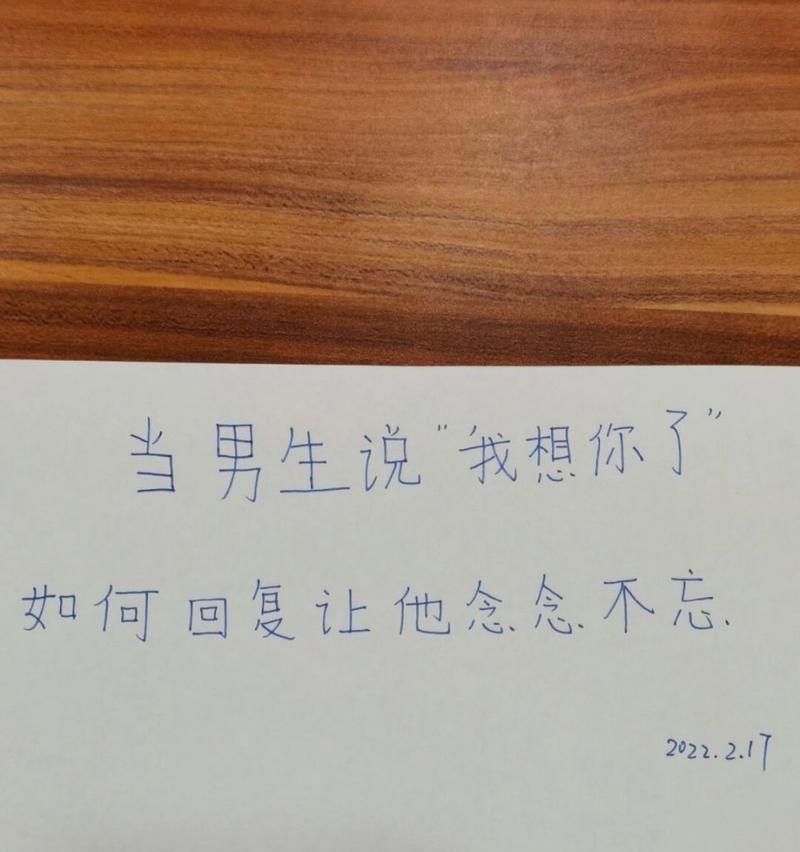 当男生说"我想你了"
如何回复让他念念不忘.
2022.2.17